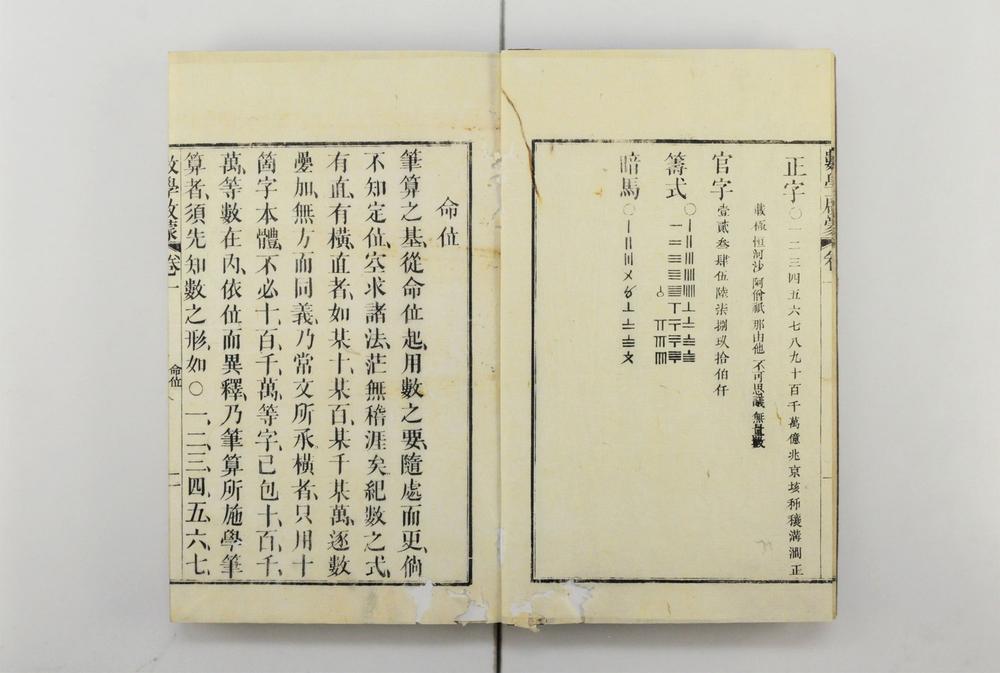 正字〇一二三四五六七八九十百千萬億兆京垓秭穰溝澗正
載極恒河沙阿僧祇那由他不可思議無量數
官字壹貳叁肆伍陸柒捌玖拾伯仟
籌式〇
暗馬〇〡〢〣〤〥〦〧〨〩
命位
筆算之基、從命位起、用數之要、隨處而更、倘
不知定位、空求諸法、茫無稽涯矣、紀數之式、
有直、有橫、直者、如某十某百某千某萬、逐數
壘加、無方而同義、乃常文所承、橫者、只用十
箇字本體、不必十百千萬等字、已包十、百、千、
萬、等數在內、依位而異釋、乃筆算所施、學筆
算者、須先知數之形、如〇一、二、三、四、五、六、七、
數學啟蒙 卷一 命位